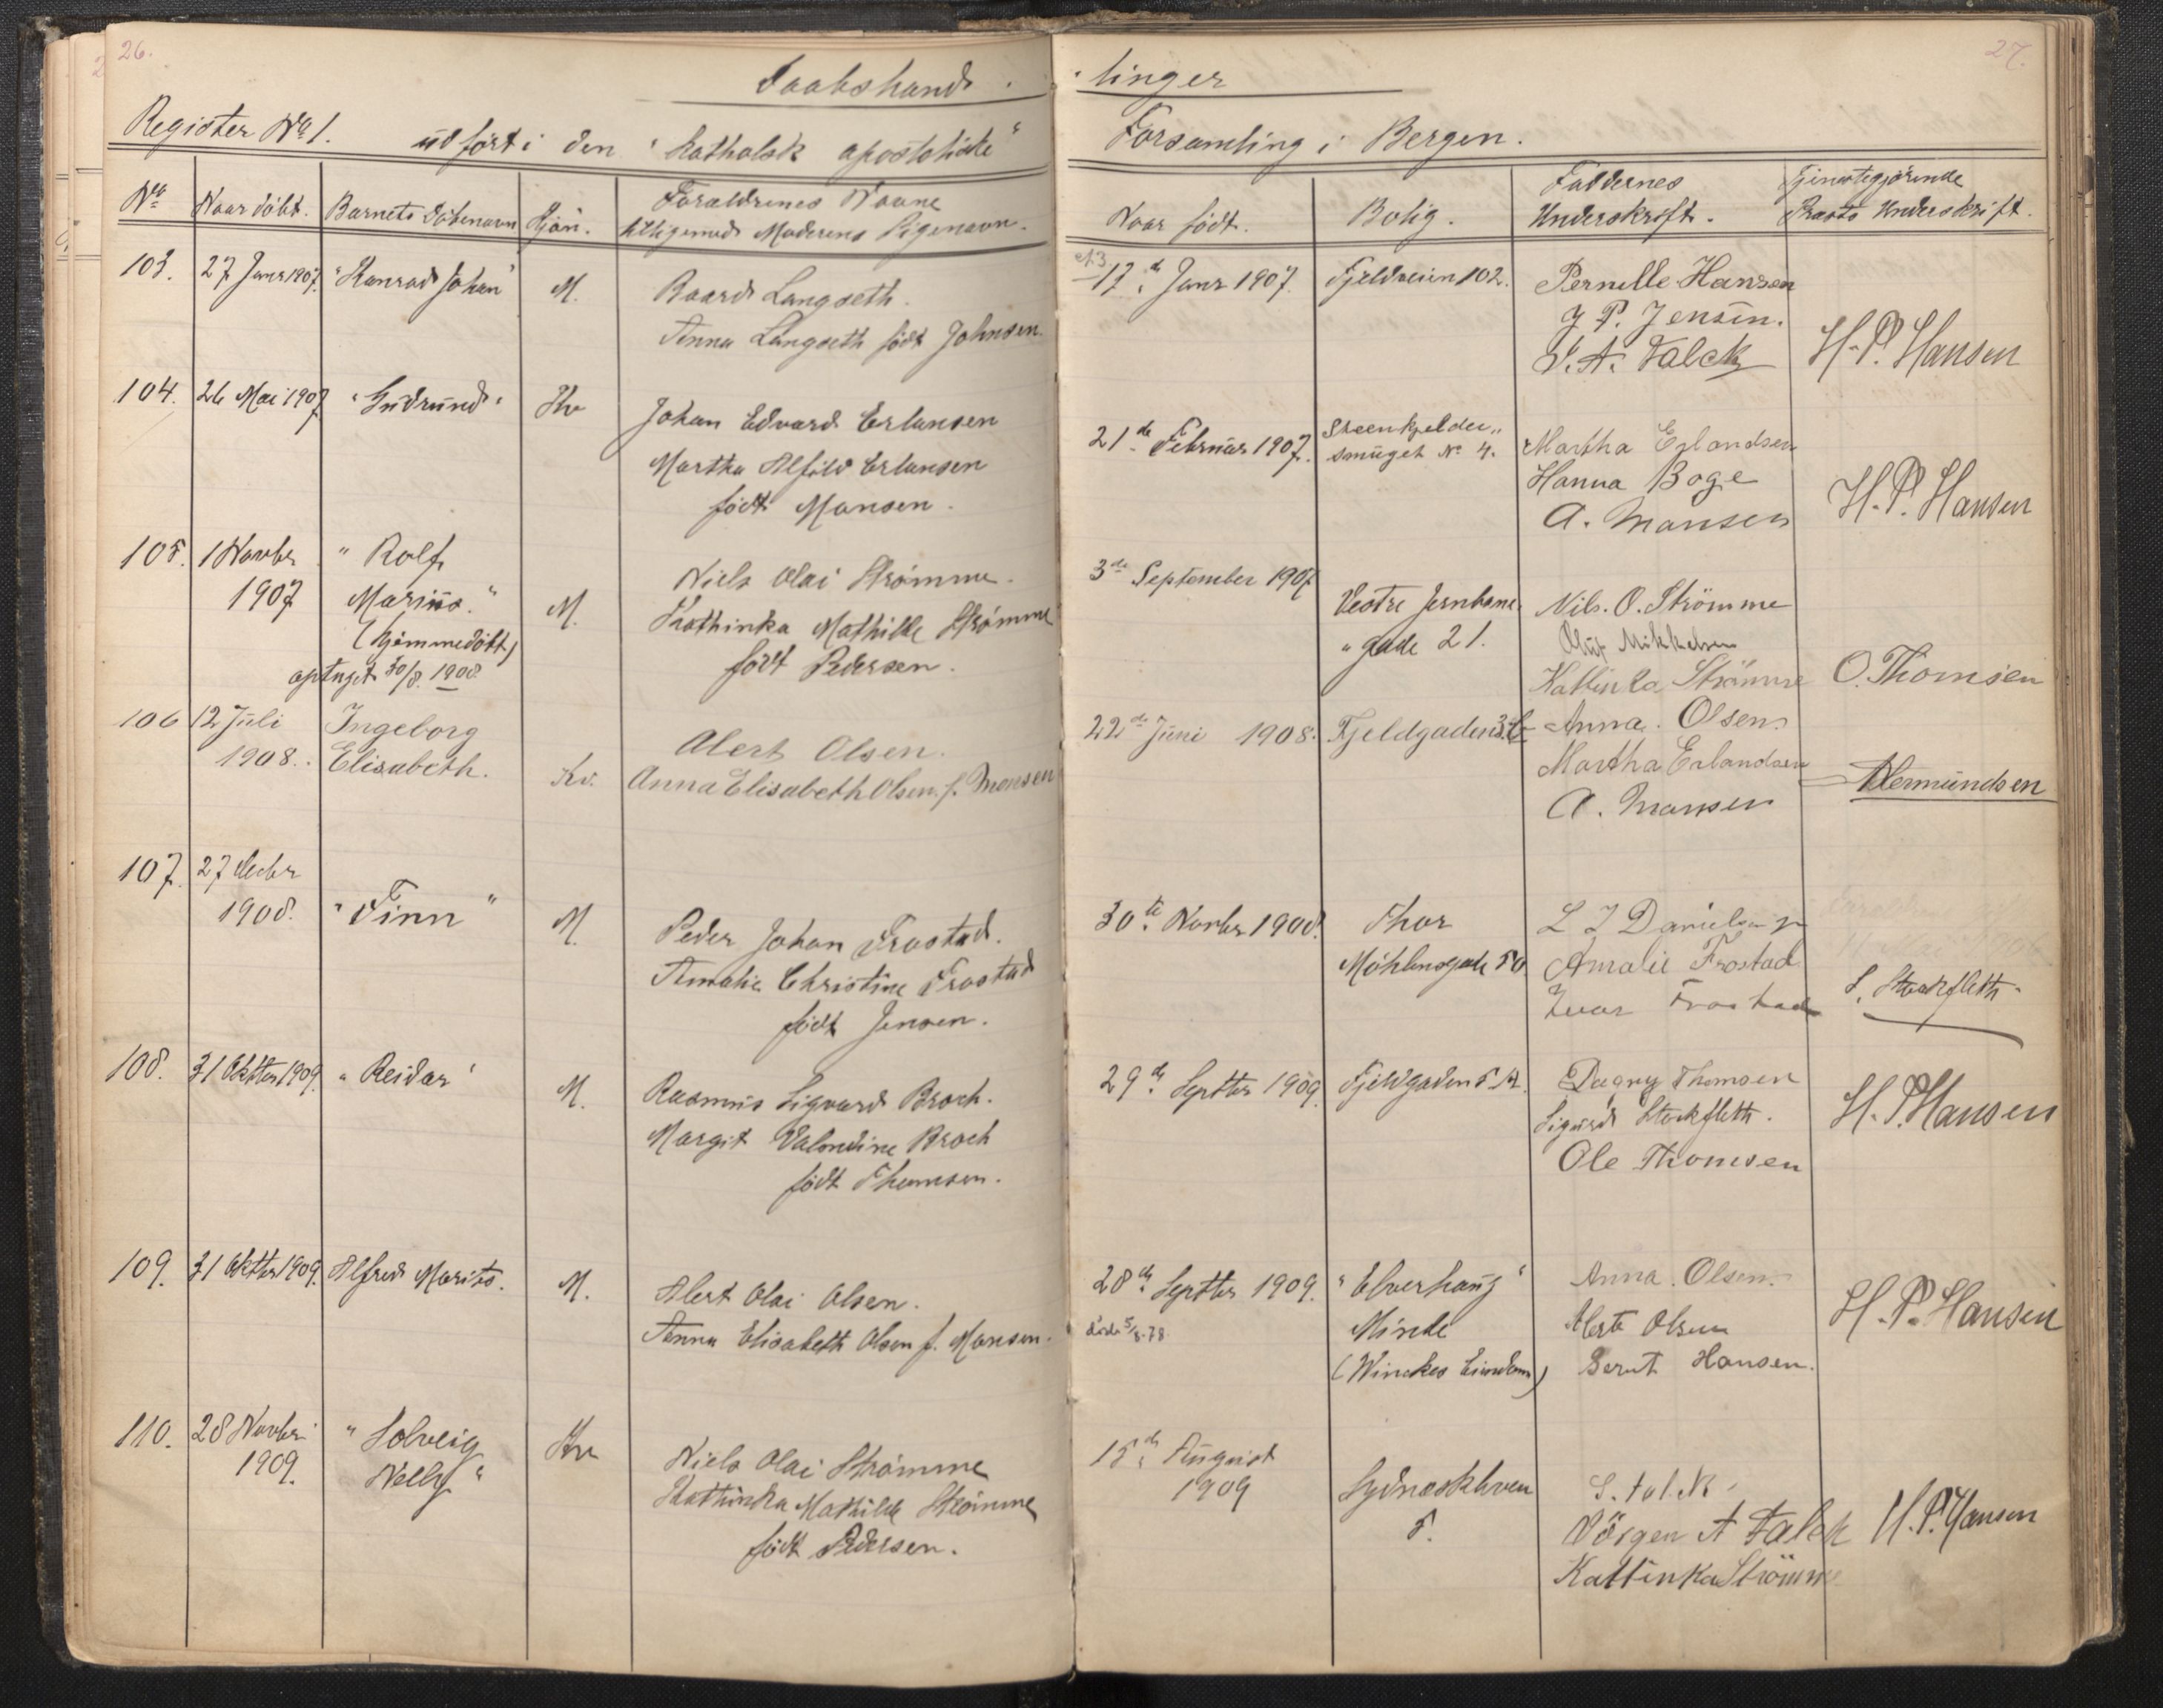 26.
27.
Daabshand-
-linger
Register No 1. udført i den "katholsk apostoliske"
Forsamling i Bergen.
No Naar døbt. Barnets Døbenavn Kjøn. Forældrenes Navne
tilligemed Moderens Pigenavn.
Naar født. Bolig. Faddernes Underskrift. Tjenestegjørende Præsts Underskrift.
103. 27 Janr 1907. "Konrad Johan" M. Baard Langseth.
Anna Langseth født Johnsen.
17de Janr 1907. Fjeldveien 102. Pernelle Hansen
J P. Jensen.
A. Falck H. P. Hansen
104. 26 Mai 1907 "Gudrund" Kv Johan Edvard Erlansen
Martha Alfild Erlansen
født Monsen.
21de Februar 1907. Steenkjelder-
smuget No 4. Martha Erlandsen
Hanna Boge
A. Monsen H. P. Hansen
105. 1 Novbr
1907 "Rolf
Marius."
(hjemmedøbt)
optaget 30/8. 1908 M. Niels Olai Strømme.
Kathinka Mathilde Strømme
født Pedersen.
3de September 1907 Vestre Jernbane-
"gade 21. Nils. O. Strömme
Oluf Mikkelsen
Kattinka Strömme O. Thomsen
106 12 Juli
1908. Ingeborg
Elisabeth. Kv. Alert Olsen.
Anna Elisabeth Olsen f. Monsen
22de Juni 1908. Fjeldgaden Anna. Olsen.
Martha Erlandsen
A. Monsen Hermundsen
107. 27 Decbr
1908. "Finn" M. Peder Johan Frostad.
Amalie Christine Frostad
født Jensen.
30te Novbr 1908. Thor
Møhlensgade 50 L J Danielsen
Amalie Frostad
Ivar Frostad S. Stockfleth.
108. 31 Oktbr 1909. "Reidar" M. Rasmus Sigvard Broch.
Margit Valendine Broch
født Thomsen.
29de Septbr 1909. Fjeldgaden 5 Dagny Thomsen
Sigurd Stockfleth.
Ole Thomsen H. P. Hansen
109. 31 Oktbr 1909. Alfred Morits. M. Alert Olai Olsen.
Anna Elisabeth Olsen f. Monsen.
28de Septbr 1909. "Elverhaug"
død 5/8-78
Minde
(Winckes Eiendom) Anna. Olsen.
Alert Olsen
Bernt Hansen. H. P. Hansen
110. 28 Novbr
1909. "Solveig
Nelly" Kv Niels Olai Strømme
Kathinka Mathilde Strømme
født Pedersen.
15de August
1909 Sydneskleven
5. S. Falck
Jörgen A Falck
Kattinka Strömme H. P. Hansen